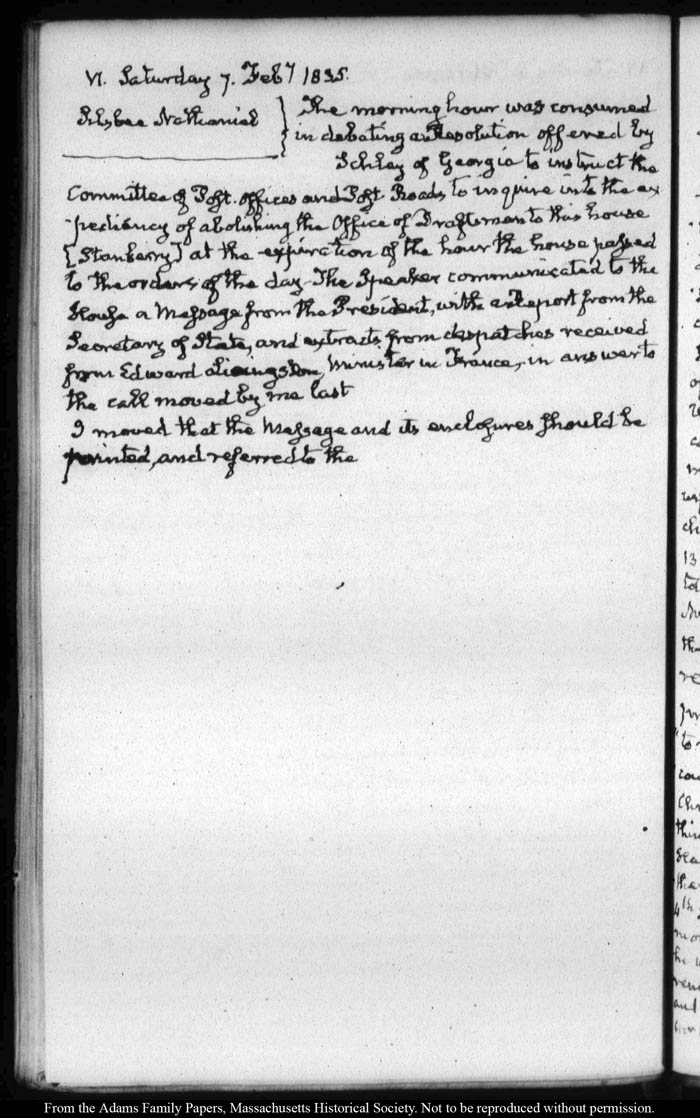 VI. Saturday 7. Feby 1835.
Silsbee Nathaniel
The morning hour was consumed
in debating a Resolution offered by
Schley of Georgia to instruct the
Committee of Post. offices and Post Roads to inquire into the ex
pediency of abolishing the Office of Draftsman to this house
[Stanbery] at the expiration of the hour the house passed
to the orders of the day The Speaker communicated to the
House a Message from the President, with a Report from the
Secretary of State, and extracts from despatches received
from Edward Livingston Minister in France, in answer to
the call moved by me last
I moved that the Message and its enclosures should be
printed, and referred to the
13
to
4th
and
From the Adams Family Papers, Massachusetts Historical Society. Not to be reproduced without permission.